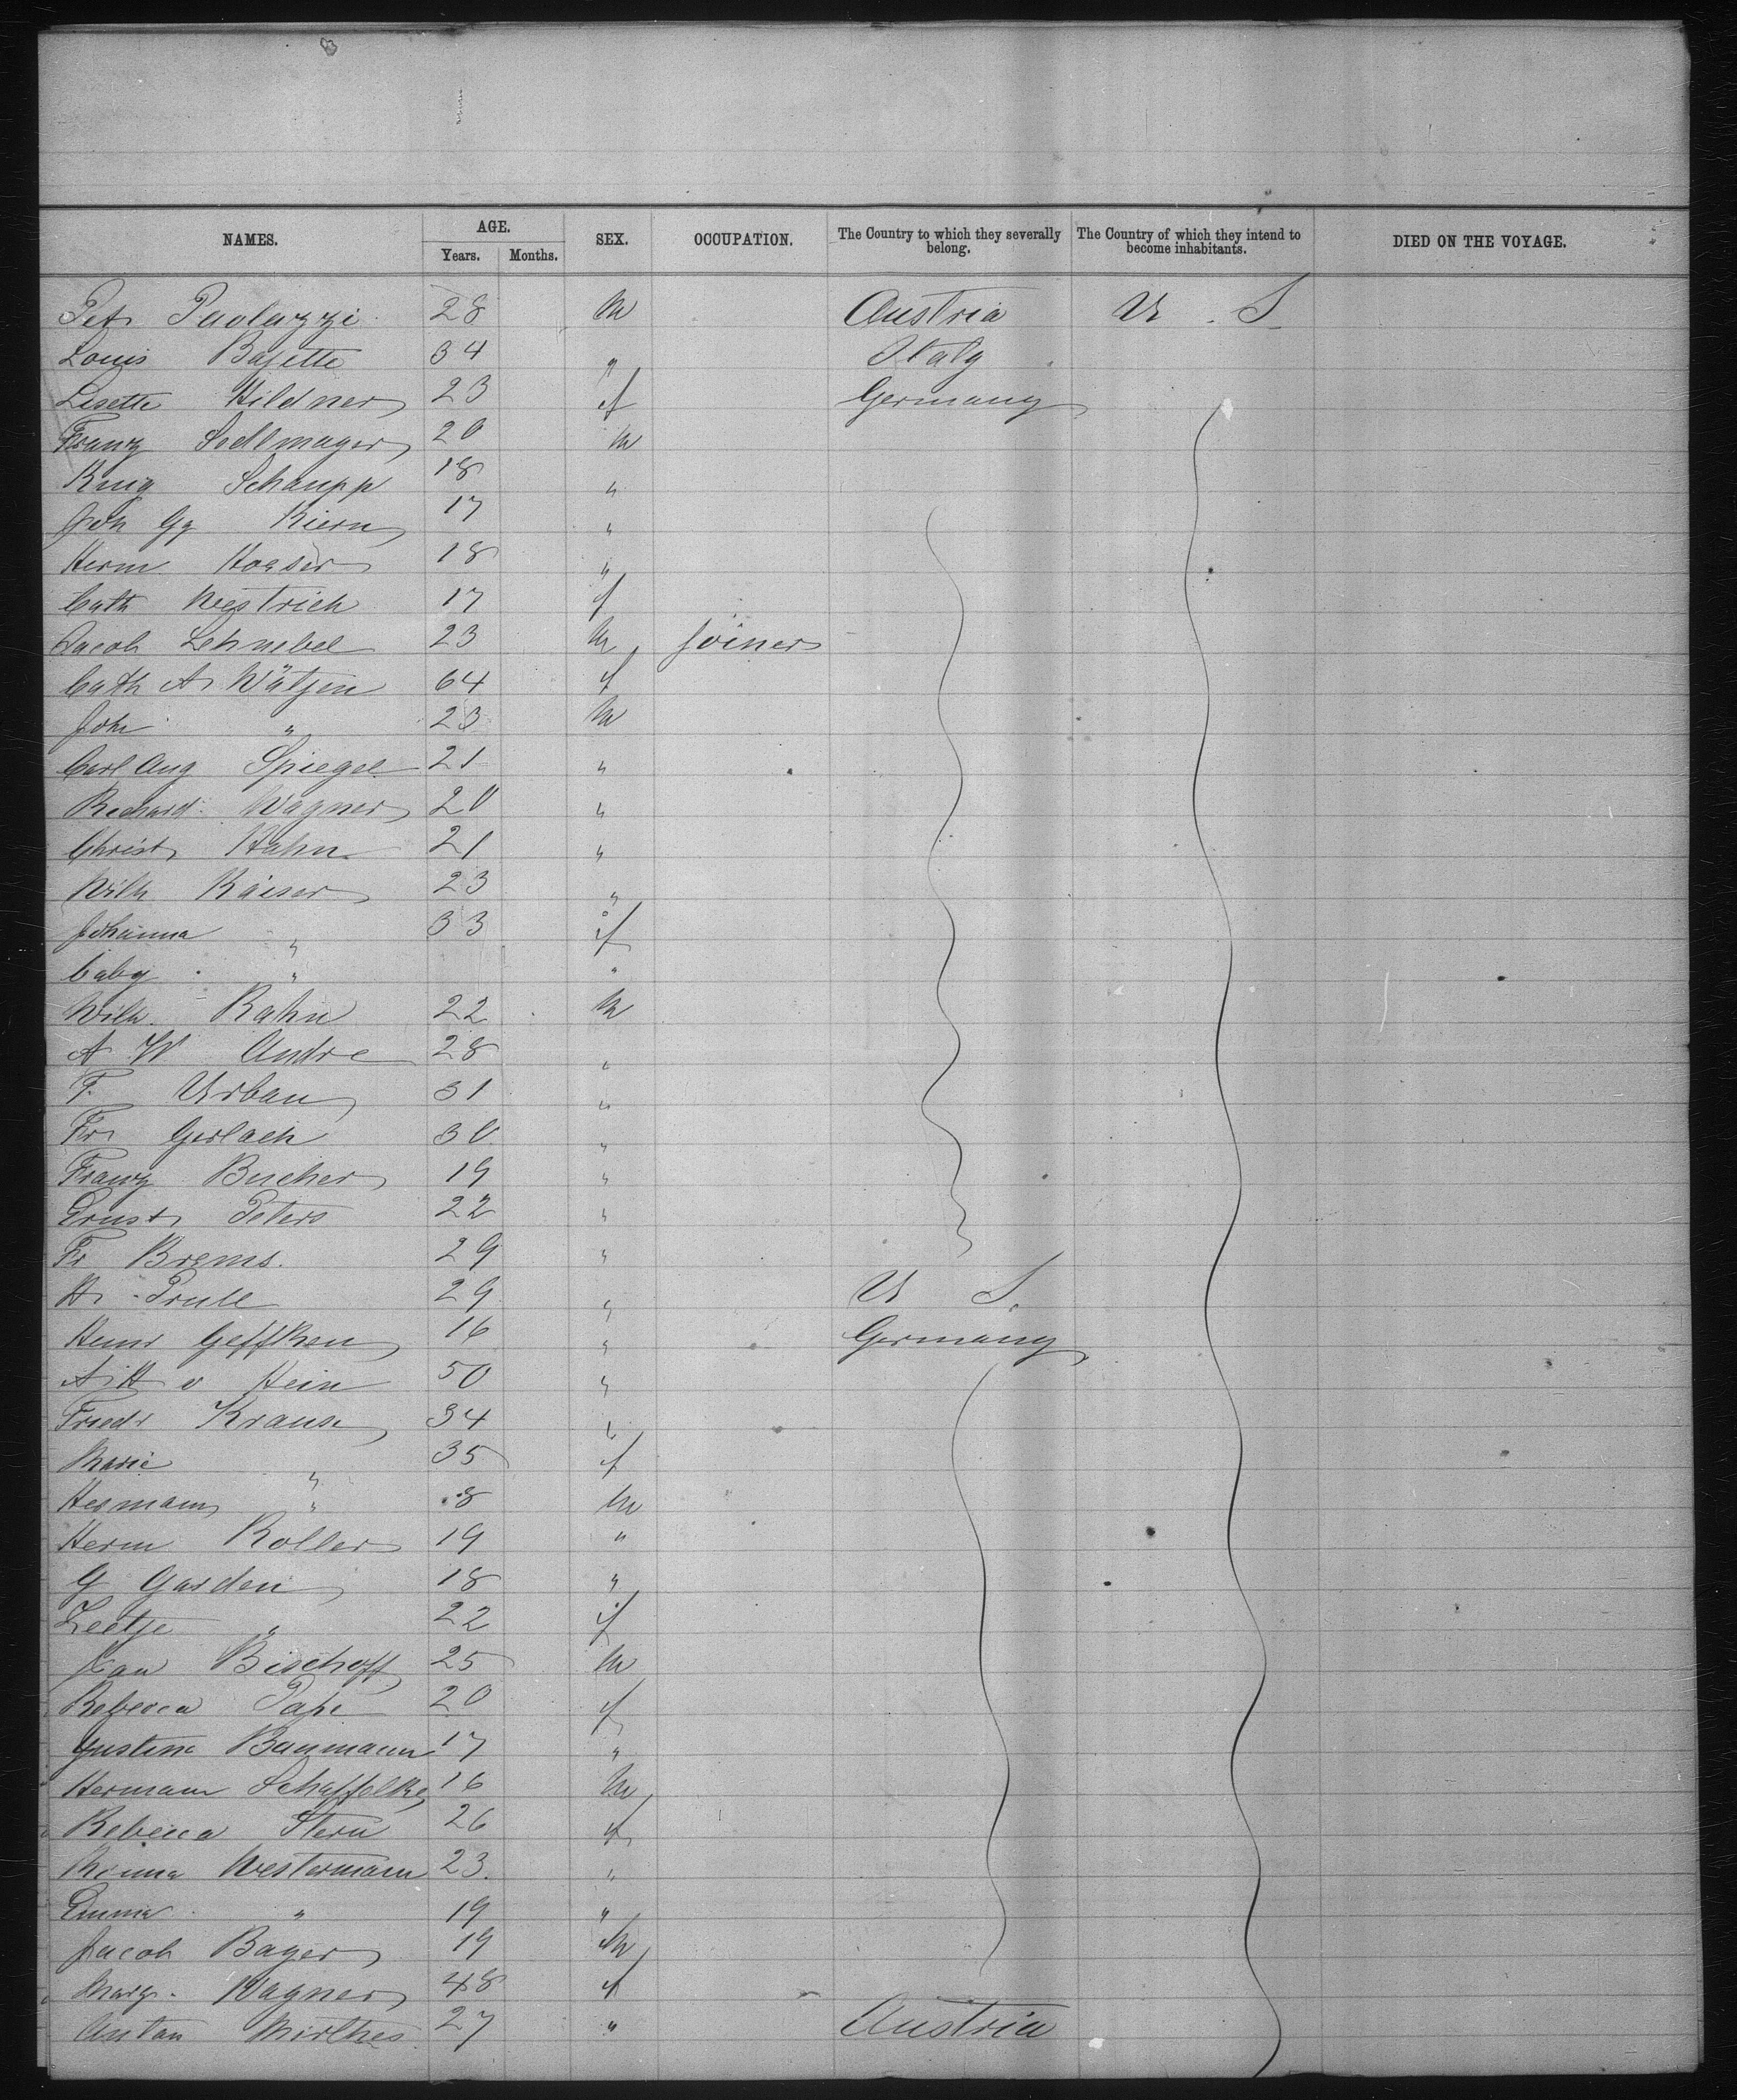 NAMES. AGE. SEX. OCCUPATION. The Country to which they severally belong. The Country of which they intend to become inhabitants. DIED ON THE VOYAGE.
Years. Months.
Pet Paolazzi 28 m Austria U. S.
Louis Bajette 34 " Italy
Lisette Hildner 23 f Germany
Franz Sedlmayer 20 m
Schaupp 18 "
Joh Gg Kiern 17 "
Herm Hoaser 18 "
Cath Westrich 17 f
Jacob Lehnebel 23 m joiner
Cath A Wätjen 64 f
Joh " 23 m
Carl Aug Spiegel 21 "
Richard Wagner 20 "
Christ Hahn 21 "
Wilh Kaiser 23 "
Johanna " 33 f
baby " "
Wilh. Rahn 22 m
A W Andre 28 "
F. Urban 31 "
Fr Gerlach 30 "
Franz Bucher 19 "
Ernst Peters 22 "
Fr Brems. 29 "
H Prull 29 " U S.
Henr Geffken 16 " Germany
A H v Hein 50 "
Friedr Krause 34 "
Marie " 35 f
Hermann " 8 m
Herm Roller 19 "
G Garden 18 "
Leetje " 22 f
Jan Bischoff 25 m
Rebecca Pape 20 f
Gustine Baumann 17 "
Hermann 16 m
Rebecca Stern 26 f
Minna Westermann 23. "
Emma " 19 "
Jacob Bayer 19 m
Marg. Wagner 48 f
Anton Mirthes 27 " Austria